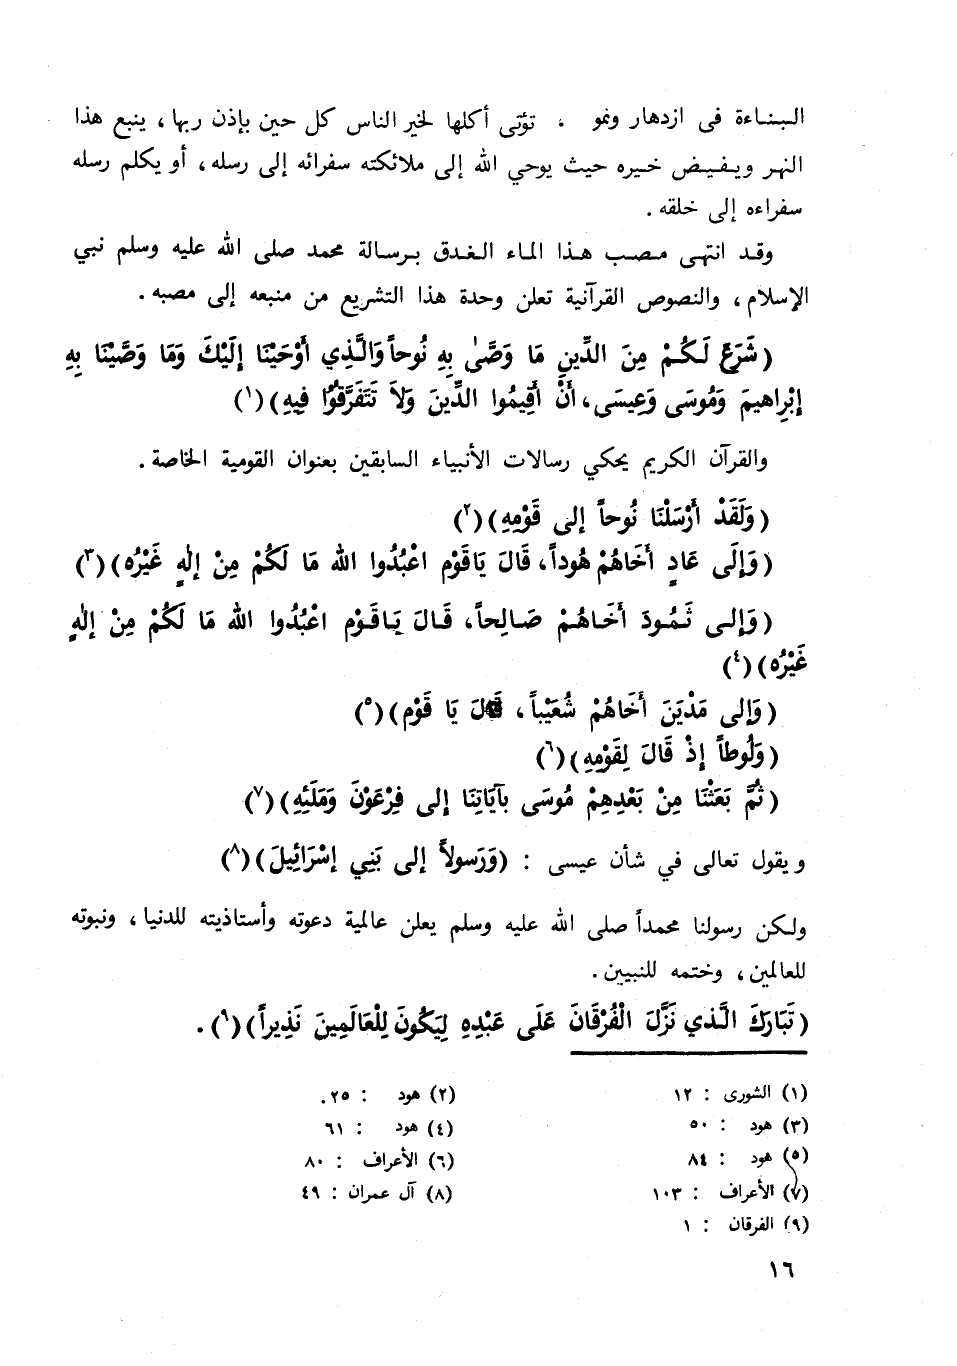 البناءة فى ازدهار ونمو ، تؤتى أكلها لخير الناس كل حين بإذن ربها ، ينبع هذا
النهر ويفيض خيره حيث يوحي الله إلى ملائكته سفرائه إلى رسله ، أو يكلم رسله
سفراءه إلى خلقه .
وقد انتهى مصب هذا الماء الغدق برسالة محمد صلى الله عليه وسلم نبي
الإسلام ، والنصوص القرآنية تعلن وحدة هذا التشريع من منبعه إلى مصبه .
( شَرَعَ لَكُمْ مِنَ الدِّينِ مَا وَصَّىٰ بِهِ نُوحاً وَالَّذِي أَوْحَيْنَا إِلَيْكَ وَمَا وَصَّيْنَا بِهِ
إِبْرَاهِيمَ وَمُوسَى وَعِيسَى ، أَنْ أَقِيمُوا الدِّينَ وَلاَ تَتَفَرَّقُوا فِيهِ ) (١)
والقرآن الكريم يحكي رسالات الأنبياء السابقين بعنوان القومية الخاصة .
( وَلَقَدْ أَرْسَلْنَا نُوحاً إلى قَوْمِهِ ) (٢)
( وَإِلَى عَادٍ أَخَاهُمْ هُوداً ، قَالَ يَاقَوْمِ اعْبُدُوا الله مَا لَكُمْ مِنْ إِلٰهٍ غَيْرُه ) (٣)
( وَإلى ثَمُودَ أَخَاهُمْ صَالِحاً ، قَالَ يَاقَوْمِ اعْبُدُوا الله مَا لَكُمْ مِنْ إِلٰهٍ
غَيْرُه ) (٤)
( وَإلى مَدْيَنَ أَخَاهُمْ شُعَيْباً ، قَالَ يَا قَوْمِ ) (٥)
( وَلُوطاً إِذْ قَالَ لِقَوْمِهِ ) (٦)
( ثُمَّ بَعَثْنَا مِنْ بَعْدِهِمْ مُوسَى بآيَاتِنَا إلى فِرْعَوْنَ وَمَلَئِهِ ) (٧)
ويقول تعالى في شأن عيسى : ( وَرَسولاً إلى بَنِي إسْرَائِيلَ ) (٨)
ولكن رسولنا محمداً صلى الله عليه وسلم يعلن عالمية دعوته وأستاذيته للدنيا ، ونبوته
للعالمين ، وختمه للنبيين .
( تَبَارَكَ الَّذي نَزَّلَ الْفُرْقَانَ عَلَى عَبْدِهِ لِيَكُونَ لِلْعَالَمِينَ نَذِيراً ) (٩) .
(١) الشورى : ١٢
(٢) هود : ٢٥ .
(٣) هود : ٥٠
(٤) هود : ٦١
(٥) هود : ٨٤
(٦) الأعراف : ٨٠
(٧) الأعراف : ١٠٣
(٨) آل عمران : ٤٩
(٩) الفرقان : ١
١٦